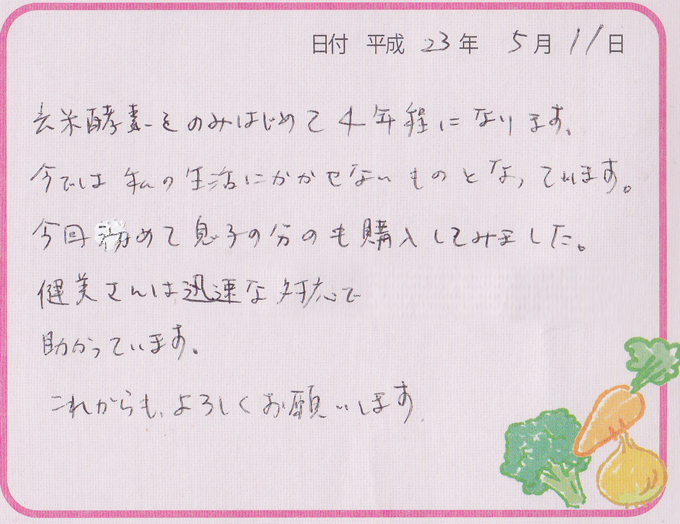 日付 平成 23年 5月 11日
玄米酵素をのみはじめて4年程になります。
今では私の生活にかかせないものとなっています。
今回初めて息子の分のも購入してみました。
健美さんは迅速な対応で
助かっています。
これからも、よろしくお願いします